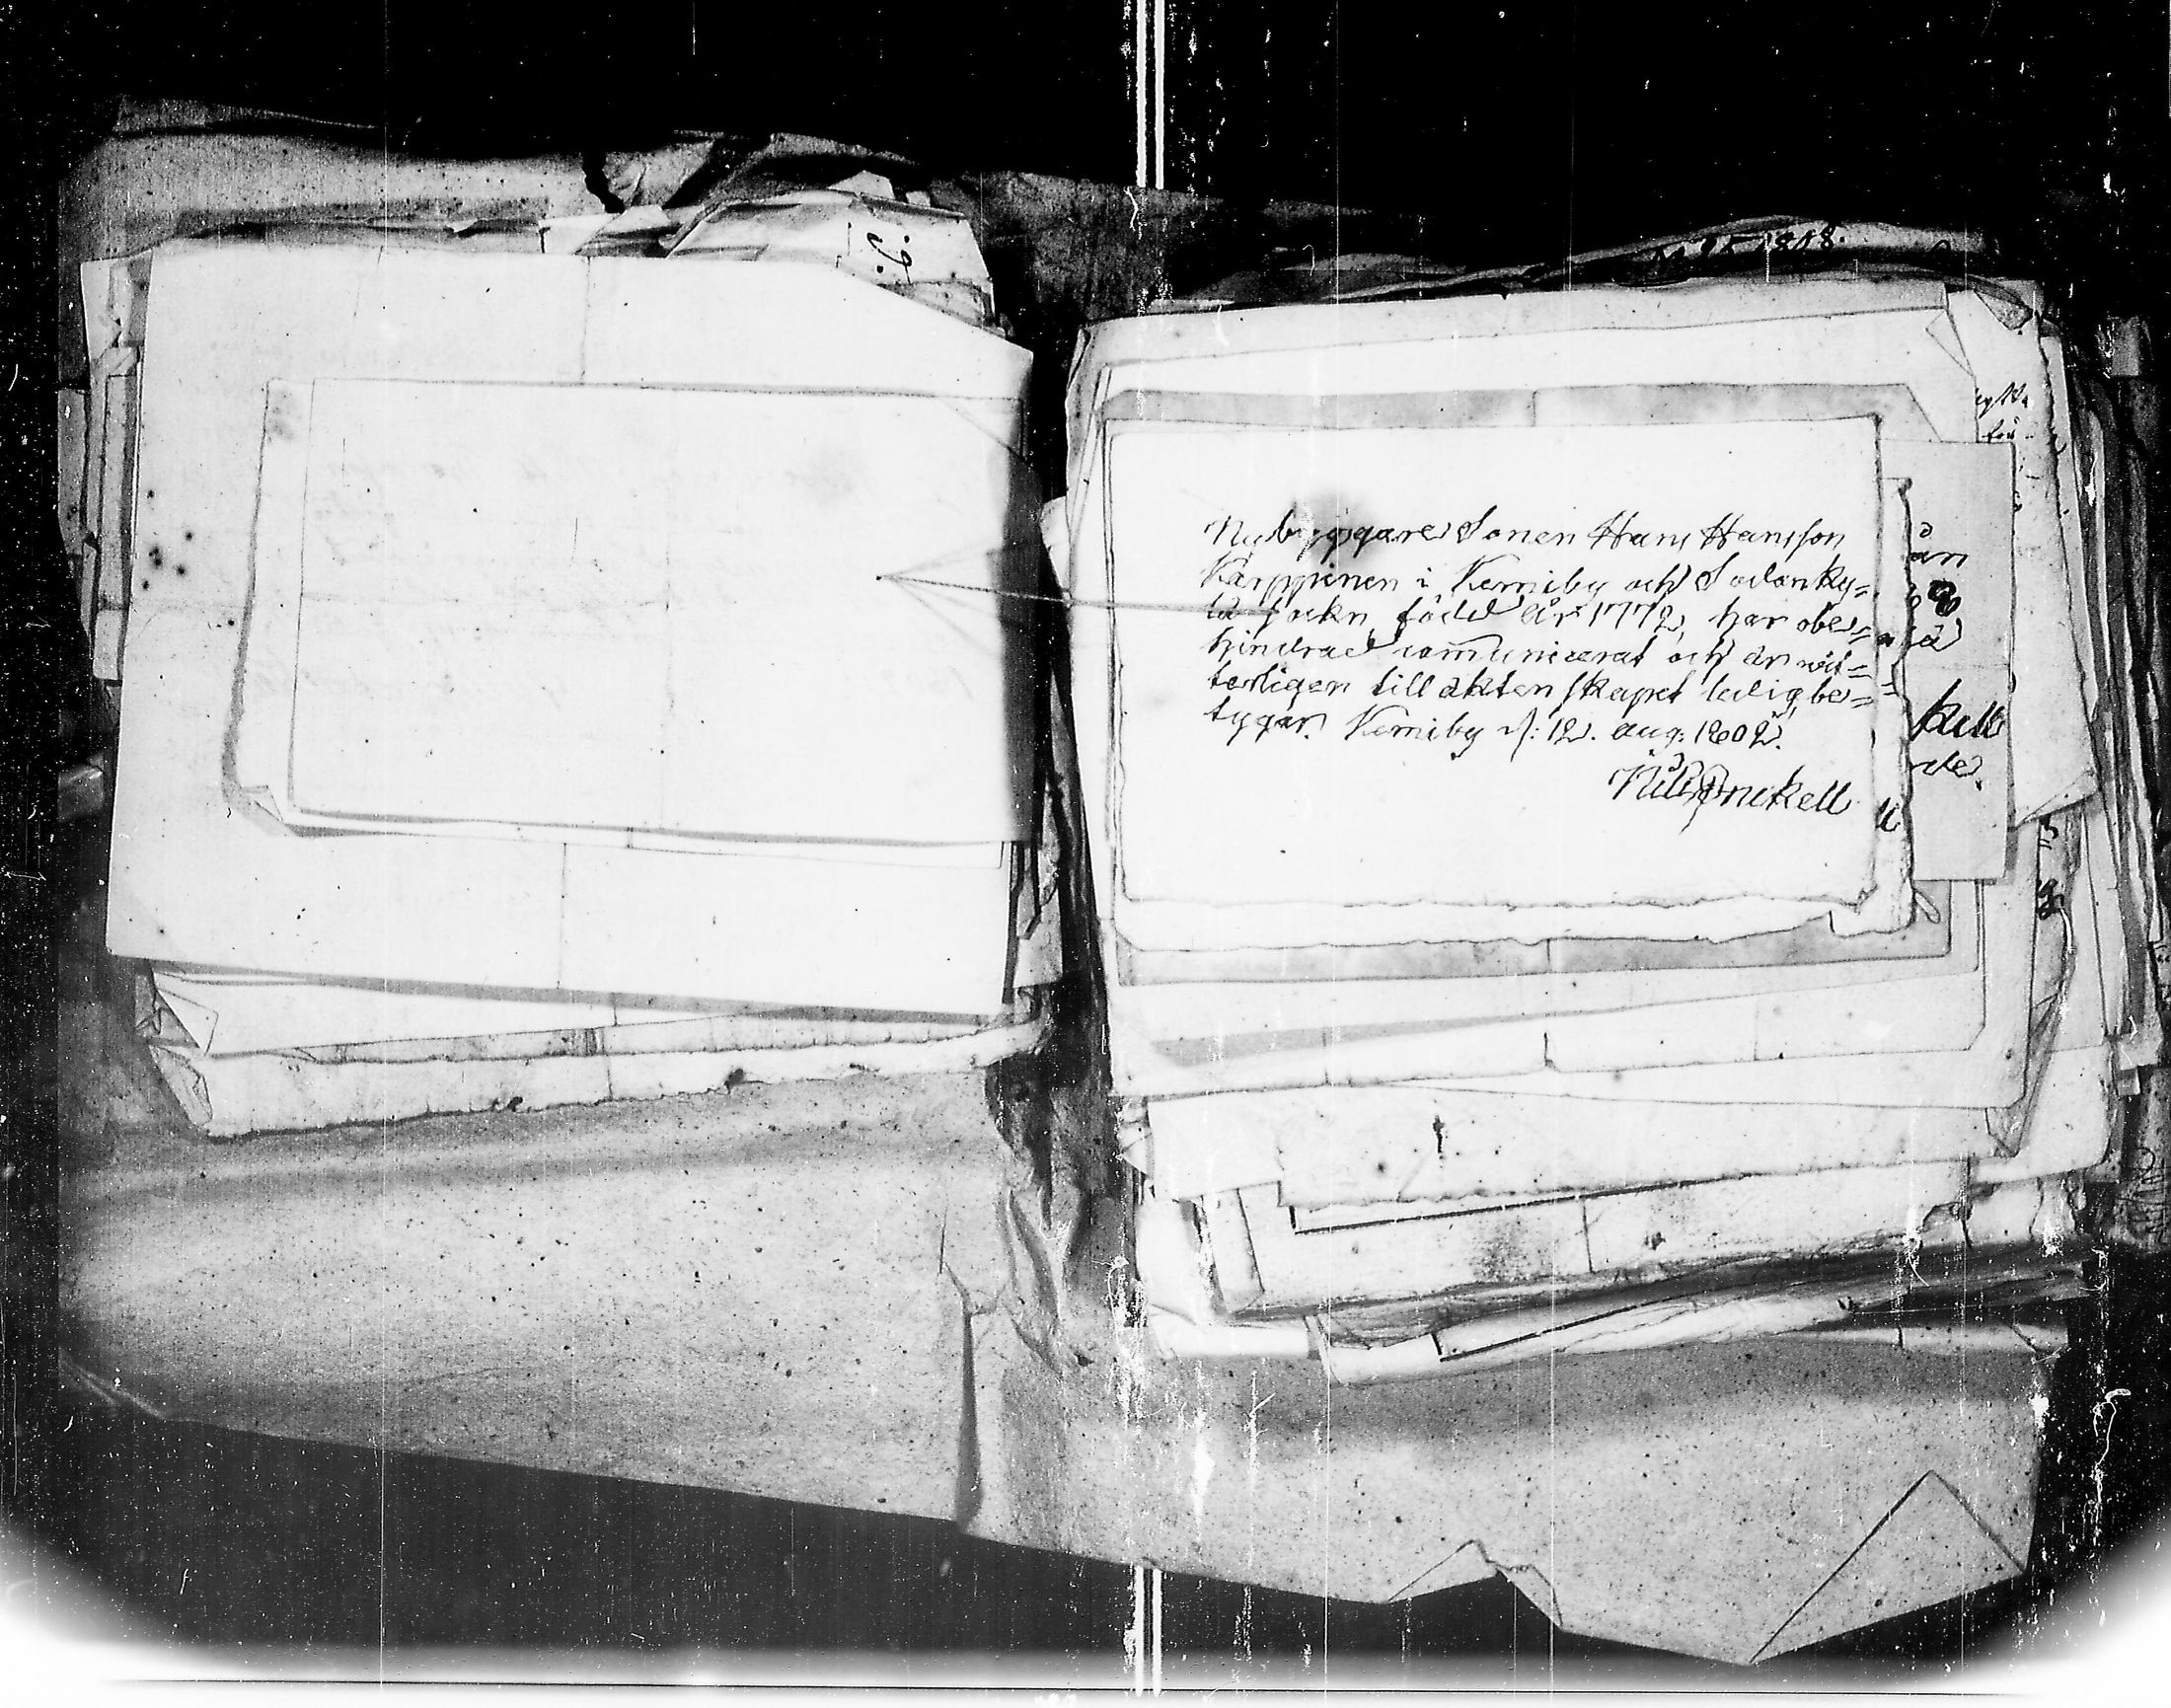 6.
1808.
Nybyggare Sonen Hans Hansson
Karppinen i Kemiby och Sodanky=
lä Sockn, född År 1772, har obe=
hindrad com̄unicerat och är vit=
terligen till äktenskapet ledig, be=
tygar. Kemiby d: 12. aug: 1802.
Nils Fnckell
än
kell